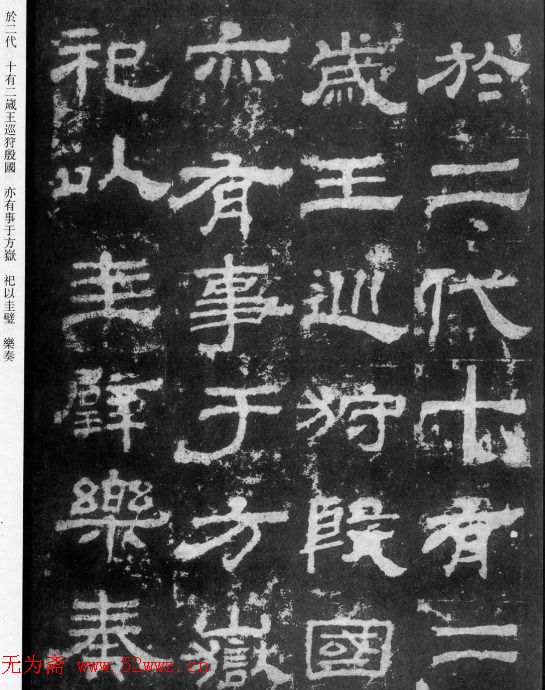 於二代十有二
歲王巡狩殷國
亦有事于方嶽
祀以圭璧樂奏
於二代 十有二歳王巡狩殷國 亦有事于方嶽 祀以圭璧 樂奏
无为斋 www.52wwz.cn